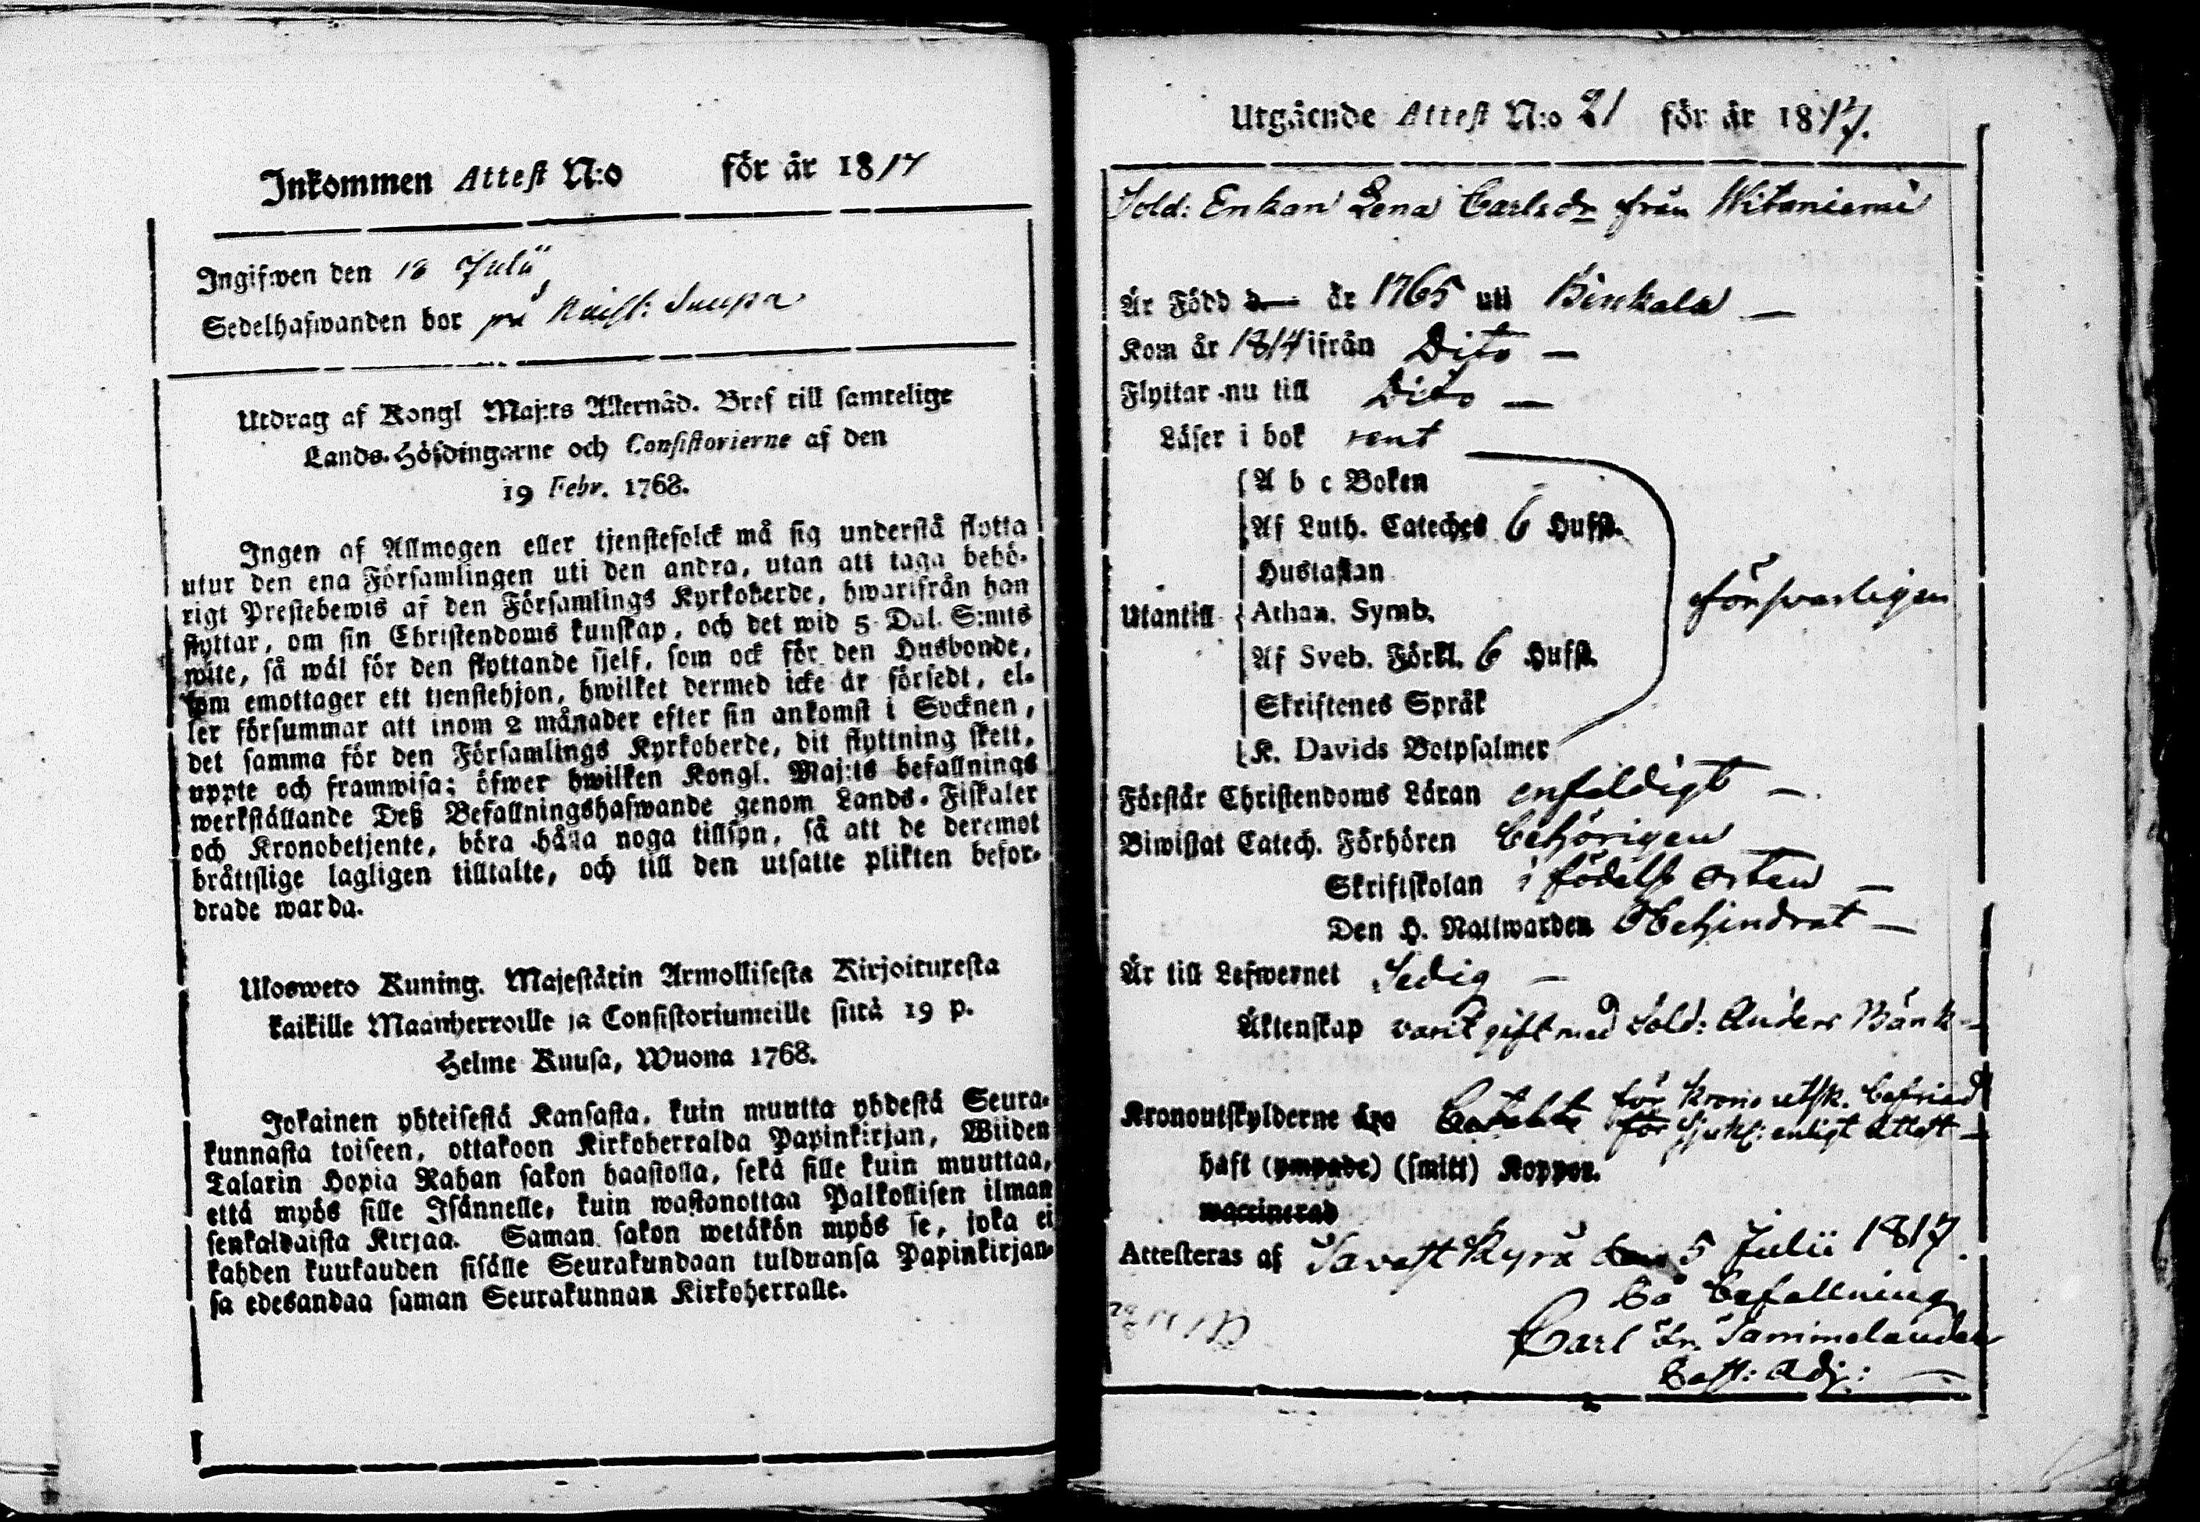 Inkommen Attest N:o för år 1817
Ingifwen den 18 Julii
Sedelhafwanden bor på
Utdrag af Kongl Maj:ts Allernåd. Bref till samtelige
Lands-Höfdingarne och Consistorierne af den
19 Febr. 1768.
Ingen af Allmogen eller tjenstefolck må sig understå flytta
utur den ena Församlingen uti den andra, utan att taga behö-
rigt Prestebewis af den Församlings Kyrkoherde, hwarifrån han
flyttar, om sin Christendoms kunskap, och det wid 5 Dal. S:mts
wite, så wäl för den flyttande sjelf, som ock för den Husbonde,
som emottager ett tjenstehjon, hwilket dermed icke är försedt, el-
ler försummar att inom 2 månader efter sin ankomst i Socknen,
det samma för den Församlings Kyrkoherde, dit flyttning skett,
uppte och framwisa; öfwer hwilken Kongl. Maj:ts befallnings
werkställande Deß Befallningshafwande genom Lands-Fiskaler
och Kronobetjente, böra hålla noga tillsyn, så att de deremot
bråttslige lagligen tilltalte, och till den utsatte plikten befor-
drade warda.
Ulosweto Kuning. Majestätin Armollisesta Kirjoituxesta
kaikille Maanherroille ja Consistoriumeille siitä 19 p.
Helme Kuusa, Wuona 1768.
Jokainen yhteisestä Kansasta, kuin muutta yhdestä Seura-
kunnasta toiseen, ottakoon Kirkoherralda Papinkirjan, Wiiden
Talarin Hopia Rahan sakon haastolla, sekä sille kuin muuttaa,
että myös sille Isännelle, kuin wastanottaa Palkollisen ilman
senkaldaista Kirjaa. Saman sakon wetäkön myös se, joka ei
kahden kuukauden sisälle Seurakundaan tulduansa Papinkirjan-
sa edesandaa saman Seurakunnan Kirkoherralle.
Utgående Attest N:o 21 för år 1817.
Sold: Enkan Lena Carlsdr från Witaniemi
Är Född d. år 1765 uti Birkala
Kom år 1814 ifrån Dito
Flyttar nu till Dito
Läser i bok rent
A b c Boken
Af Luth. Cateches 6 Hufst.
Hustaflan
Utantill Athan. Symb. försvarligen
Af Sveb. Förkl. 6 Hufst.
Skriftenes Språk
K. Davids Botpsalmer
Förstår Christendoms Läran enfaldigt
Biwistat Catech. Förhören behörigen
Skriftskolan i födelse orten
Den H. Nattwarden Obehindrat
Är till Lefwernet Sedig
Äktenskap varit gift med Sold: Anders Bänk
för Krono utsk. befriad
Kronoutskylderne äro för enligt Attest
haft (ympade) (smitt) Koppor.
waccinerad
Attesteras af Tavast Kyrö den 5 Julii 1817.
På befallning
Carl Tammelander
Past: Adj: